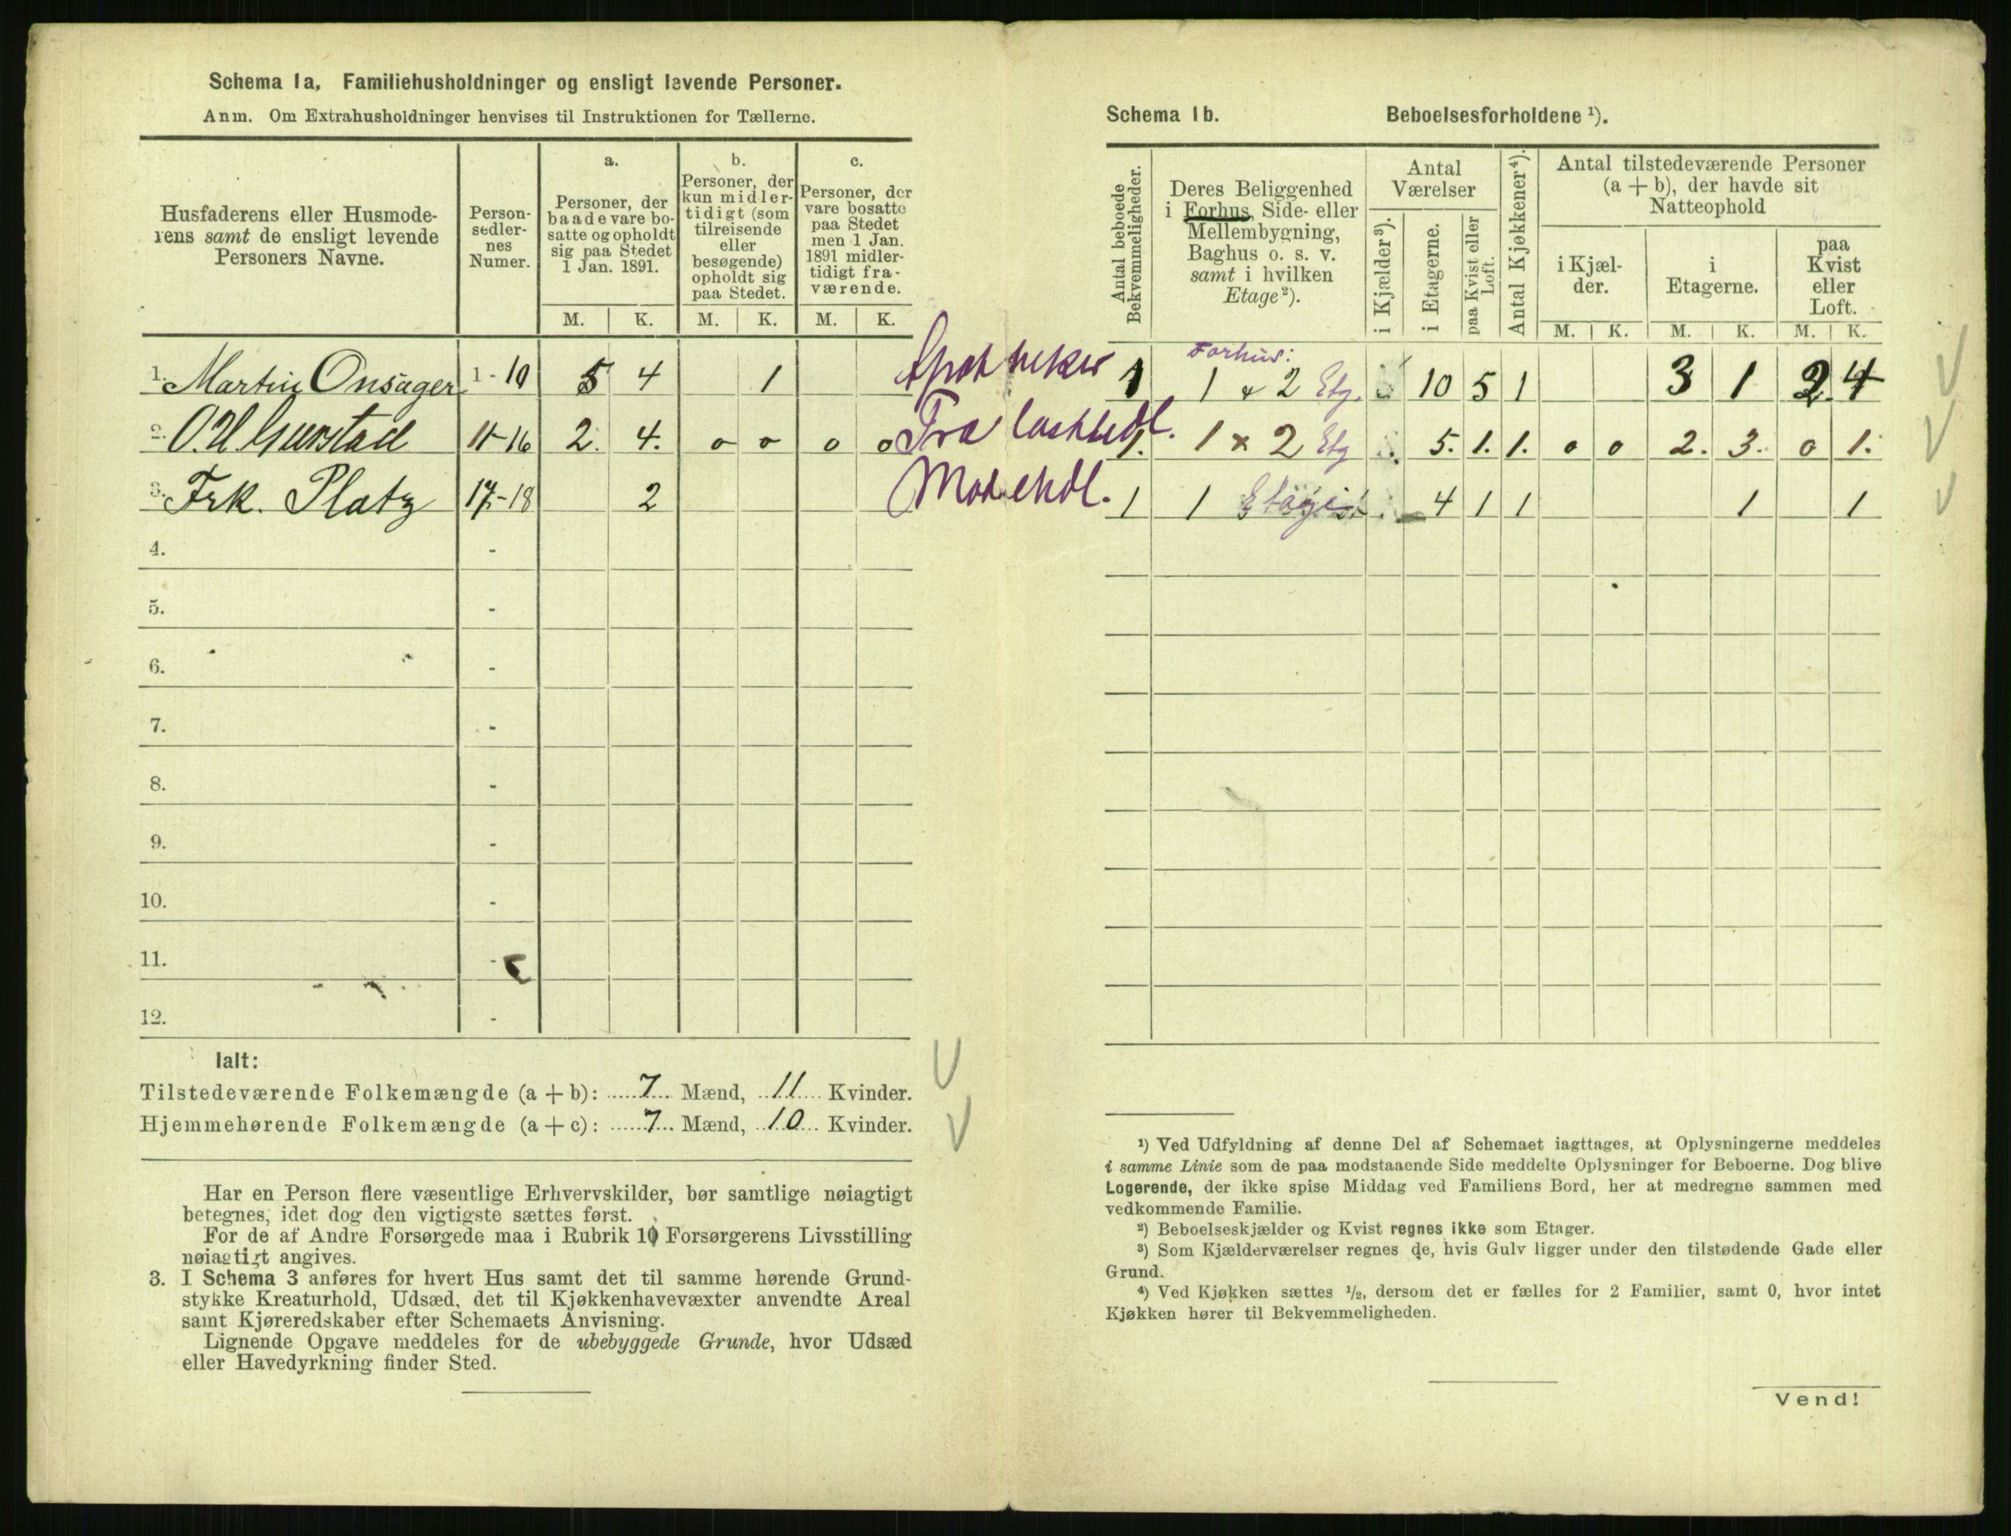 Schema 1a, Familiehusholdninger og ensligt levende Personer.
Anm. Om Extrahusholdninger henvises til Instruktionen for Tællerne.
Husfaderens eller Husmode-
rens samt de ensligt levende
Personers Navne.
Person-
sedler-
nes
Numer.
a.
Personer, der
baade vare bo-
satte og opholdt
sig paa Stedet
1 Jan. 1891.
b.
Personer, der
kun midler-
tidigt (som
tilreisende
eller
besøgende)
opholdt sig
paa Stedet.
c.
Personer, der
vare bosatte
paa Stedet
men 1 Jan.
1891 midler-
tidigt fra-
værende.
M. K. M. K. M. K.
1. Martin Onsager 1-10 5 4 1 Apotheker
2. O. H. Gurstad 11-16 2. 4. o o o o Trælasthdl.
3. Frk. Platz 17-18 2 Modehdl.
4. -
5. -
6. -
7. -
8. -
9. -
10. -
11. -
12. -
Ialt:
Tilstedeværende Folkemængde (a + b): 7 Mænd, 11 Kvinder.
Hjemmehørende Folkemængde (a + c): 7 Mænd, 10 Kvinder.
Har en Person flere væsentlige Erhvervskilder, bør samtlige nøiagtigt
betegnes, idet dog den vigtigste sættes først.
For de af Andre Forsørgede maa i Rubrik 10 Forsørgerens Livsstilling
nøiagtigt angives.
3. I Schema 3 anføres for hvert Hus samt det til samme hørende Grund-
stykke Kreaturhold, Udsæd, det til Kjøkkenhavevæxter anvendte Areal
samt Kjøreredskaber efter Schemaets Anvisning.
Lignende Opgave meddeles for de ubebyggede Grunde, hvor Udsæd
eller Havedyrkning finder Sted.
Schema 1b. Beboelsesforholdene ¹).
Antal beboede
Bekvemmeligheder.
Deres Beliggenhed
i Forhus, Side- eller
Mellembygning,
Baghus o. s. v.
samt i hvilken
Etage ²).
Antal
Værelser
i Kjælder ³).
i Etagerne.
paa Kvist eller
Loft.
Antal Kjøkkener ⁴).
Antal tilstedeværende Personer
(a + b), der havde sit
Natteophold
i Kjæl-
der.
i
Etagerne.
paa
Kvist
eller
Loft.
M. K. M. K. M. K.
Forhus:
1 1 & 2 Etg. 10 5 1 3 1 2 4
1. 1 x 2 Etg 5. 1. 1. o o 2. 3. o 1.
1 1 4 1 1 1 1
¹) Ved Udfyldning af denne Del af Schemaet iagttages, at Oplysningerne meddeles
i samme Linie som de paa modstaaende Side meddelte Oplysninger for Beboerne. Dog blive
Logerende, der ikke spise Middag ved Familiens Bord, her at medregne sammen med
vedkommende Familie.
²) Beboelseskjælder og Kvist regnes ikke som Etager.
³) Som Kjælderværelser regnes de, hvis Gulv ligger under den tilstødende Gade eller
Grund.
⁴) Ved Kjøkken sættes ½, dersom det er fælles for 2 Familier, samt 0, hvor intet
Kjøkken hører til Bekvemmeligheden.
Vend!